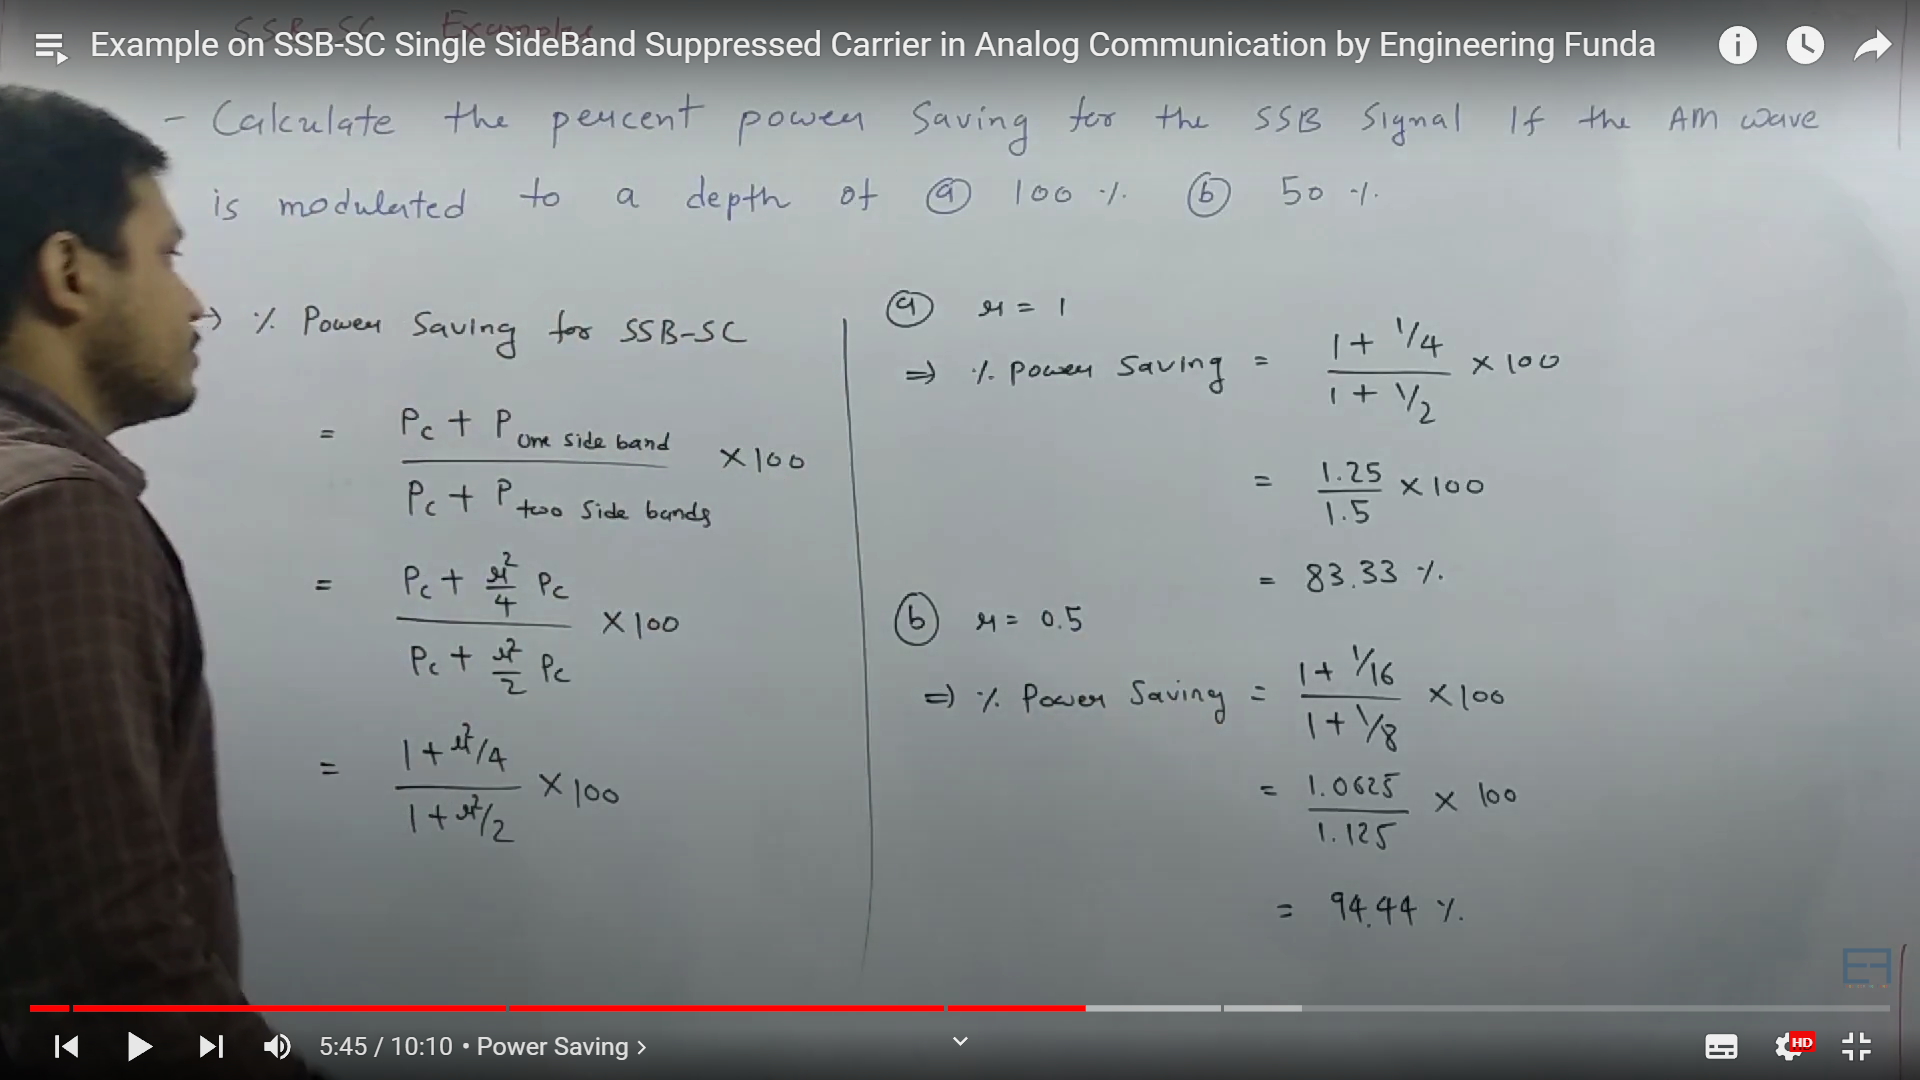 SSB-SC Examples
Example on SSB-SC Single SideBand Suppressed Carrier in Analog Communication by Engineering Funda
- Calculate the percent power saving for the SSB signal If the AM wave
is modulated to a depth of (a) 100 % (b) 50 %.
→ % Power Saving for SSB-SC
= (Pc + P one side band) / (Pc + P two side bands) × 100
= (Pc + μ²/4 Pc) / (Pc + μ²/2 Pc) × 100
= (1 + μ²/4) / (1 + μ²/2) × 100
(a) μ = 1
⇒ % power saving = (1 + 1/4) / (1 + 1/2) × 100
= 1.25 / 1.5 × 100
= 83.33 %.
(b) μ = 0.5
⇒ % Power Saving = (1 + 1/16) / (1 + 1/8) × 100
= 1.0625 / 1.125 × 100
= 94.44 %.
EF
5:45 / 10:10 • Power Saving >
HD